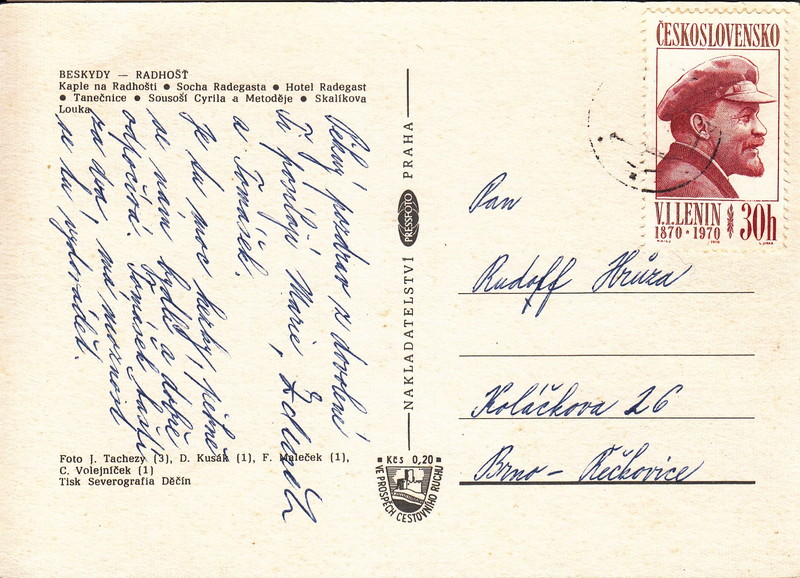 BESKYDY — RADHOŠŤ
Kaple na Radhošti • Socha Radegasta • Hotel Radegast
• Tanečnice • Sousoší Cyrila a Metoděje • Skalíkova
Louka
Pěkný pozdrav z dovolené
Ti posílají Marie, Zdeněk
a Tomášek.
Je tu moc hezky, pěkně
se nám bydlí a dobře
odpočívá. Tomášek
za dva má možnost
se tu vydovádět.
Foto J. Tachezy (3), D. Kusák (1), F. Maleček (1),
C. Volejníček (1)
Tisk Severografia Děčín
NAKLADATELSTVÍ PRESSFOTO PRAHA
Kčs 0,20
VE PROSPĚCH CESTOVNÍHO RUCHU
ČESKOSLOVENSKO
V.I.LENIN
1870 • 1970
30h
Pan
Rudolf Hrůza
Koláčkova 26
Brno - Řečkovice